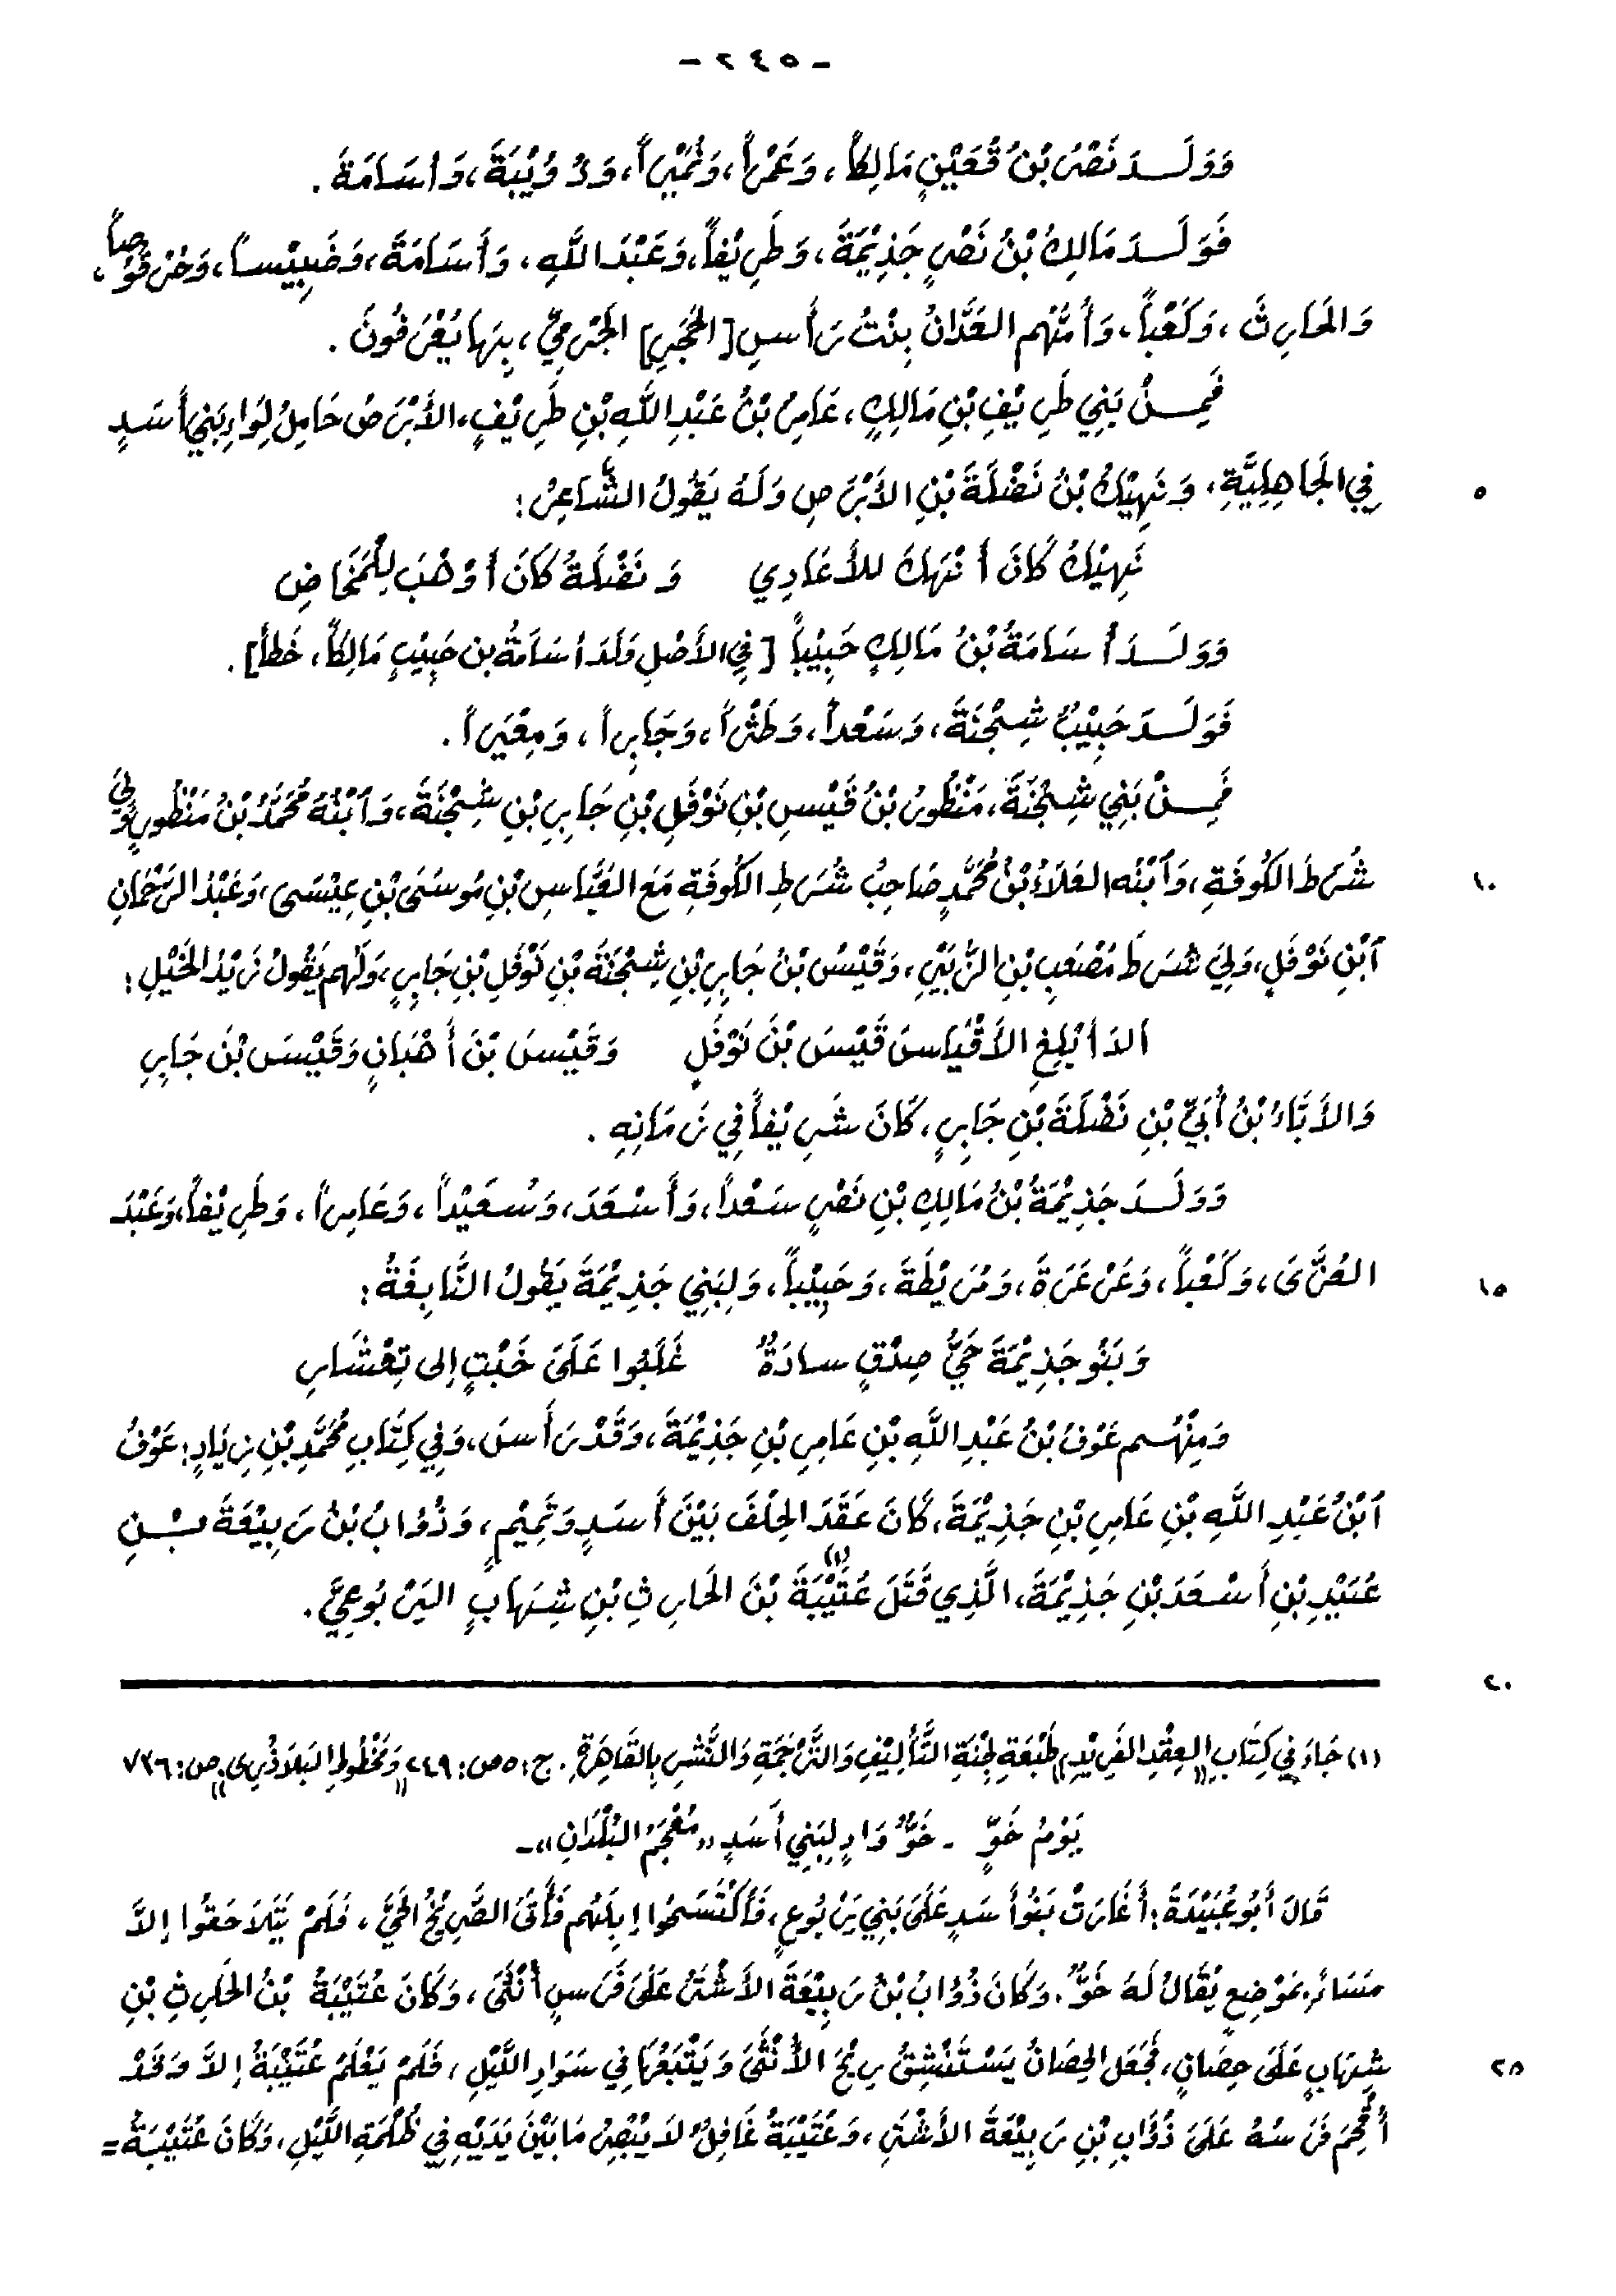 - ٢٤٥ -
وَوَلَـدَ نَصْرُ بْنُ قُعَيْنٍ مَالِكاً، وَعَمْراً، وَنُمَيْراً، وَذُوَيْبَةَ، وَأُسَامَةَ.
فَوَلَـدَ مَالِكُ بْنُ نَصْرٍ جَذِيْمَةَ، وَطَرِيْفاً، وَعَبْدَ اللَّهِ، وَأُسَامَةَ، وَخَبِيْساً، وَحُرْقُوْصاً،
وَالحَارِثَ، وَكَعْباً، وَأُمُّهُم العَدَّانُ بِنْتُ رَأْسِ [الحَجَرِ] الجَرْمِيِّ، بِهَا يُعْرَفُونَ.
فَمِـنْ بَنِي طَرِيْفِ بْنِ مَالِكٍ، عَامِرُ بْنُ عَبْدِ اللَّهِ بْنِ طَرِيْفٍ، الأَبْرَصُ حَامِلُ لِوَاءِ بَنِي أَسَدٍ
فِي الجَاهِلِيَّةِ، وَنَهِيْكُ بْنُ نَضْلَةَ بْنِ الأَبْرَصِ وَلَهُ يَقُولُ الشَّاعِرُ: ٥
نَهِيْكُ كَانَ أَنْهَكَ للأَعَادِي وَنَضْلَةُ كَانَ أَوْهَبَ لِلْمَخَاضِ
وَوَلَـدَ أُسَامَةُ بْنُ مَالِكٍ حَبِيْباً [فِي الأَصْلِ وَلَدَ أُسَامَةُ بن حَبِيْبٍ مَالِكاً، خَطأ].
فَوَلَـدَ حَبِيْبٌ شِجْنَةَ، وَسَعْداً، وَطَثْراً، وَجَابِراً، وَمِعْيَراً.
فَمِـنْ بَنِي شِجْنَةَ، مَنْظُورُ بْنُ قَيْسِ بْنِ نَوْفَلِ بْنِ جَابِرِ بْنِ شِجْنَةَ، وَٱبْنُهُ مُحَمَّدُ بْنُ مَنْظُورٍ وَلِيَ
شُرَطَ الكُوفَةِ، وَٱبْنُه العَلاَءُ بْنُ مُحَمَّدٍ صَاحِبُ شُرَطِ الكُوفَةِ مَعَ العَبَّاسِ بْنِ مُوسَى بْنِ عِيْسَى، وَعَبْدُ الرَّحْمَانِ ١٠
ٱبْنِ نَوْفَلٍ، وَلِيَ شُرَطَ مُصْعَبِ بْنِ الزُّبَيْرِ، وَقَيْسُ بْنُ جَابِرِ بْنِ شِجْنَةَ بْنِ نَوْفَلِ بْنِ جَابِرٍ، وَلَهُم يَقُولُ زَيْدُ الخَيْلِ:
أَلاَ أَبْلِغِ الأَقْيَاسَ قَيْسَ بْنَ نَوْفَلٍ وَقَيْسَ بْنَ أُهْبَانٍ وَقَيْسَ بْنَ جَابِرِ
وَالأَبَّاءُ بْنُ أُبَيِّ بْنِ نَضْلَةَ بْنِ جَابِرٍ، كَانَ شَرِيْفاً فِي زَمَانِهِ.
وَوَلَـدَ جَذِيْمَةُ بْنُ مَالِكِ بْنِ نَصْرٍ سَعْداً، وَأَسْعَدَ، وَسُعَيْداً، وَعَامِراً، وَطَرِيْفاً، وَعَبْدَ
العُزَّى، وَكَعْباً، وَعَرْعَرَةَ، وَمُرَيْطَةَ، وَحَبِيْباً، وَلِبَنِي جَذِيْمَةَ يَقُولُ النَّابِغَةُ: ١٥
وَبَنُو جَذِيْمَةَ حَيُّ صِدْقٍ سادَةٌ غَلَبُوا عَلَىَ خَبْتٍ إلى تِعْشَارِ
وَمِنْهُـم عَوْفُ بْنُ عَبْدِ اللَّهِ بْنِ عَامِرِ بْنِ جَذِيْمَةَ، وَقَدْ رَأَسَ، وَفِي كِتَابِ مُحَمَّدِ بْنِ زِيَادٍ: عَوْفُ
ٱبْنُ عَبْدِ اللَّهِ بْنِ عَامِرِ بْنِ جَذِيْمَةَ، كَانَ عَقَدَ الحِلْفَ بَيْنَ أَسَدٍ وَتَمِيْمٍ، وَذُؤابُ بْنُ رَبِيْعَةَ بْـنِ
عُبَيْدِ بْنِ أَسْعَدَ بْنِ جَذِيْمَةَ، الَّذِي قَتَلَ عُتَيْبَةَ (١) بْنَ الحَارِثِ بْنِ شِهَابٍ اليَرْبُوعِيَّ.
٢٠
(١) جَاءَ فِي كِتَابِ «العِقْدِ الفَرِيْدِ» طَبْعَةِ لَجْنَةِ التَّأْلِيْفِ وَالتَّرْجَمَةِ وَالنَّشْرِ بِالقَاهِرَةِ. ج: ٥ ص: ٢٤٩ «وَمَخْطُوطِ البَلاَذُرِي» ص: ٧٣٦
يَوْمُ خَوٍّ - خَوٌّ وَادٍ لِبَنِي أَسَدٍ «مُعْجَمُ البُلْدَانِ» -
قَالَ أَبُو عُبَيْدَةَ: أَغَارَتْ بَنُو أَسَدٍ عَلَىَ بَنِي يَرْبُوعٍ، فَٱكْتَسَحُوا إِبِلَهُم فَأَتَىَ الصَّرِيْخُ الحَيَّ، فَلَمْ يَتَلاَحَقُوا إِلاَّ
مَسَاءً بِمَوْضِعٍ يُقَالُ لَهُ خَوٌّ. وَكَانَ ذُؤَابُ بْنُ رَبِيْعَةَ الأَشْتَرُ عَلَىَ فَرَسٍ أُنْثَىَ، وَكَانَ عُتَيْبَةُ بْنُ الحَارِثِ بْنِ
شِهَابٍ عَلَىَ حِصَانٍ، فَجَعَلَ الحِصَانُ يَسْتَنْشِقُ رِيْحَ الأُنْثَىَ وَيَتْبَعُهَا فِي سَوَادِ اللَّيْلِ، فَلَمْ يَعْلَمْ عُتَيْبَةُ إِلاَّ وَقَدْ ٢٥
أَقْحَمَ فَرَسَهُ عَلَىَ ذُؤَابِ بْنِ رَبِيْعَةَ الأَشْتَرِ، وَعُتَيْبَةُ غَافِلٌ لاَ يُبْصِرُ مَا بَيْنَ يَدَيْهِ فِي ظُلْمَةِ اللَّيْلِ، وَكَانَ عُتَيْبَةُ =